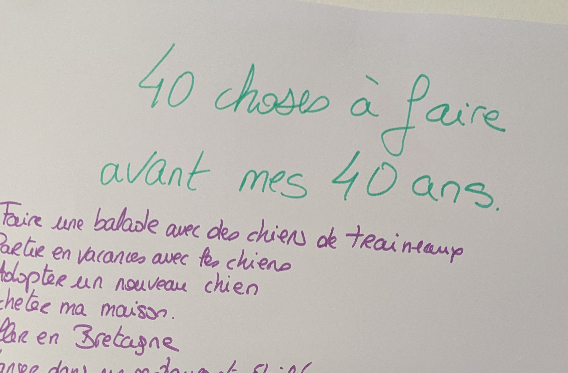 40 choses à faire
avant mes 40 ans.
Faire une balade avec des chiens de traineaux
Partir en vacances avec les chiens
Adopter un nouveau chien
cheter ma maison.
en Bretagne
dans un